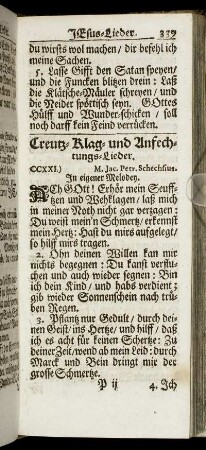 JEsus-Lieder. 339
du wirsts wol machen / dir befehl ich
meine Sachen.
5. Lasse Gifft den Satan speyen/
und die Funcken blitzen drein: Laß
die Klätsche-Mäuler schreyen / und
die Neider spöttisch seyn. GOttes
Hülff und Wunder-schicken / soll
noch darff kein Feind verrücken.
Creutz- Klag- und Anfech-
tungs-Lieder.
CCXXI.) M. Jac. Petr. Schechsius.
In eigener Melodey.
ACh GOtt! Erhör mein Seuff-
tzen und Wehklagen / laß mich
in meiner Noth nicht gar verzagen:
Du weist mein'n Schmertz/ erkennst
mein Hertz: Hast du mirs aufgelegt/
so hilf mirs tragen.
2. Ohn deinen Willen kan mir
nichts begegnen: Du kanst verflu-
chen und auch wieder segnen: Bin
ich dein Kind / und habs verdient;
gib wieder Sonnenschein nach trü-
ben Regen.
3. Pflantz nur Gedult / durch dei-
nen Geist / ins Hertze / und hilff / daß
ich es acht für keinen Schertze: Zu
deiner Zeit / wend ab mein Leid: durch
Marck und Bein dringt mir der
grosse Schmertze.
P ij 4. Ich